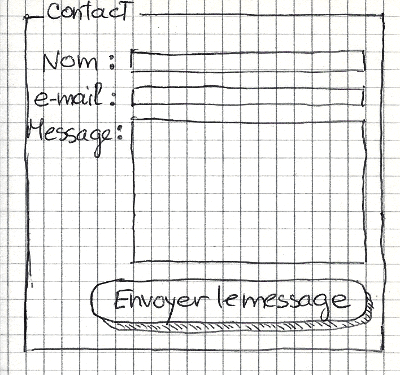 Contact
Nom :
e-mail :
Message :
Envoyer le message